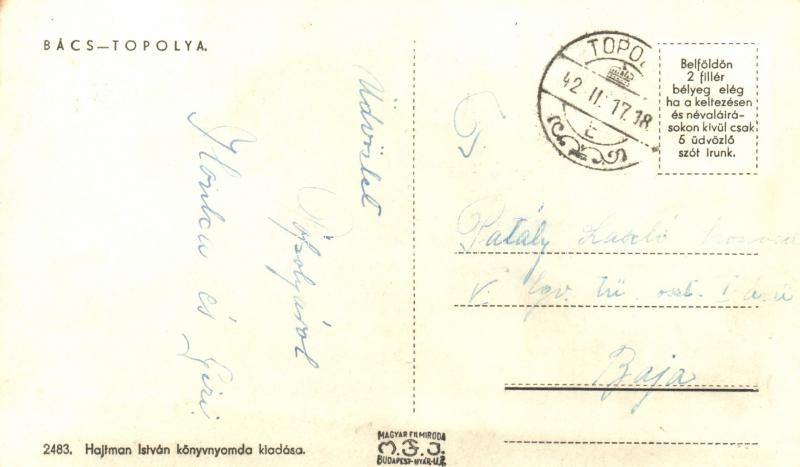 BÁCS—TOPOLYA.
Üdvözlet
Topolyáról
Ilonka és Gizi
TOPOL
42 II. 17. 18
E
Belföldön
2 fillér
bélyeg elég
ha a keltezésen
és névaláirá-
sokon kivül csak
5 üdvözlő
szót irunk.
Patály László
V.
oszt.
Baja
2483. Hajtman István könyvnyomda kiadása.
MAGYAR FILMIRODA
M.F.I.
BUDAPEST-NYÁR-U.